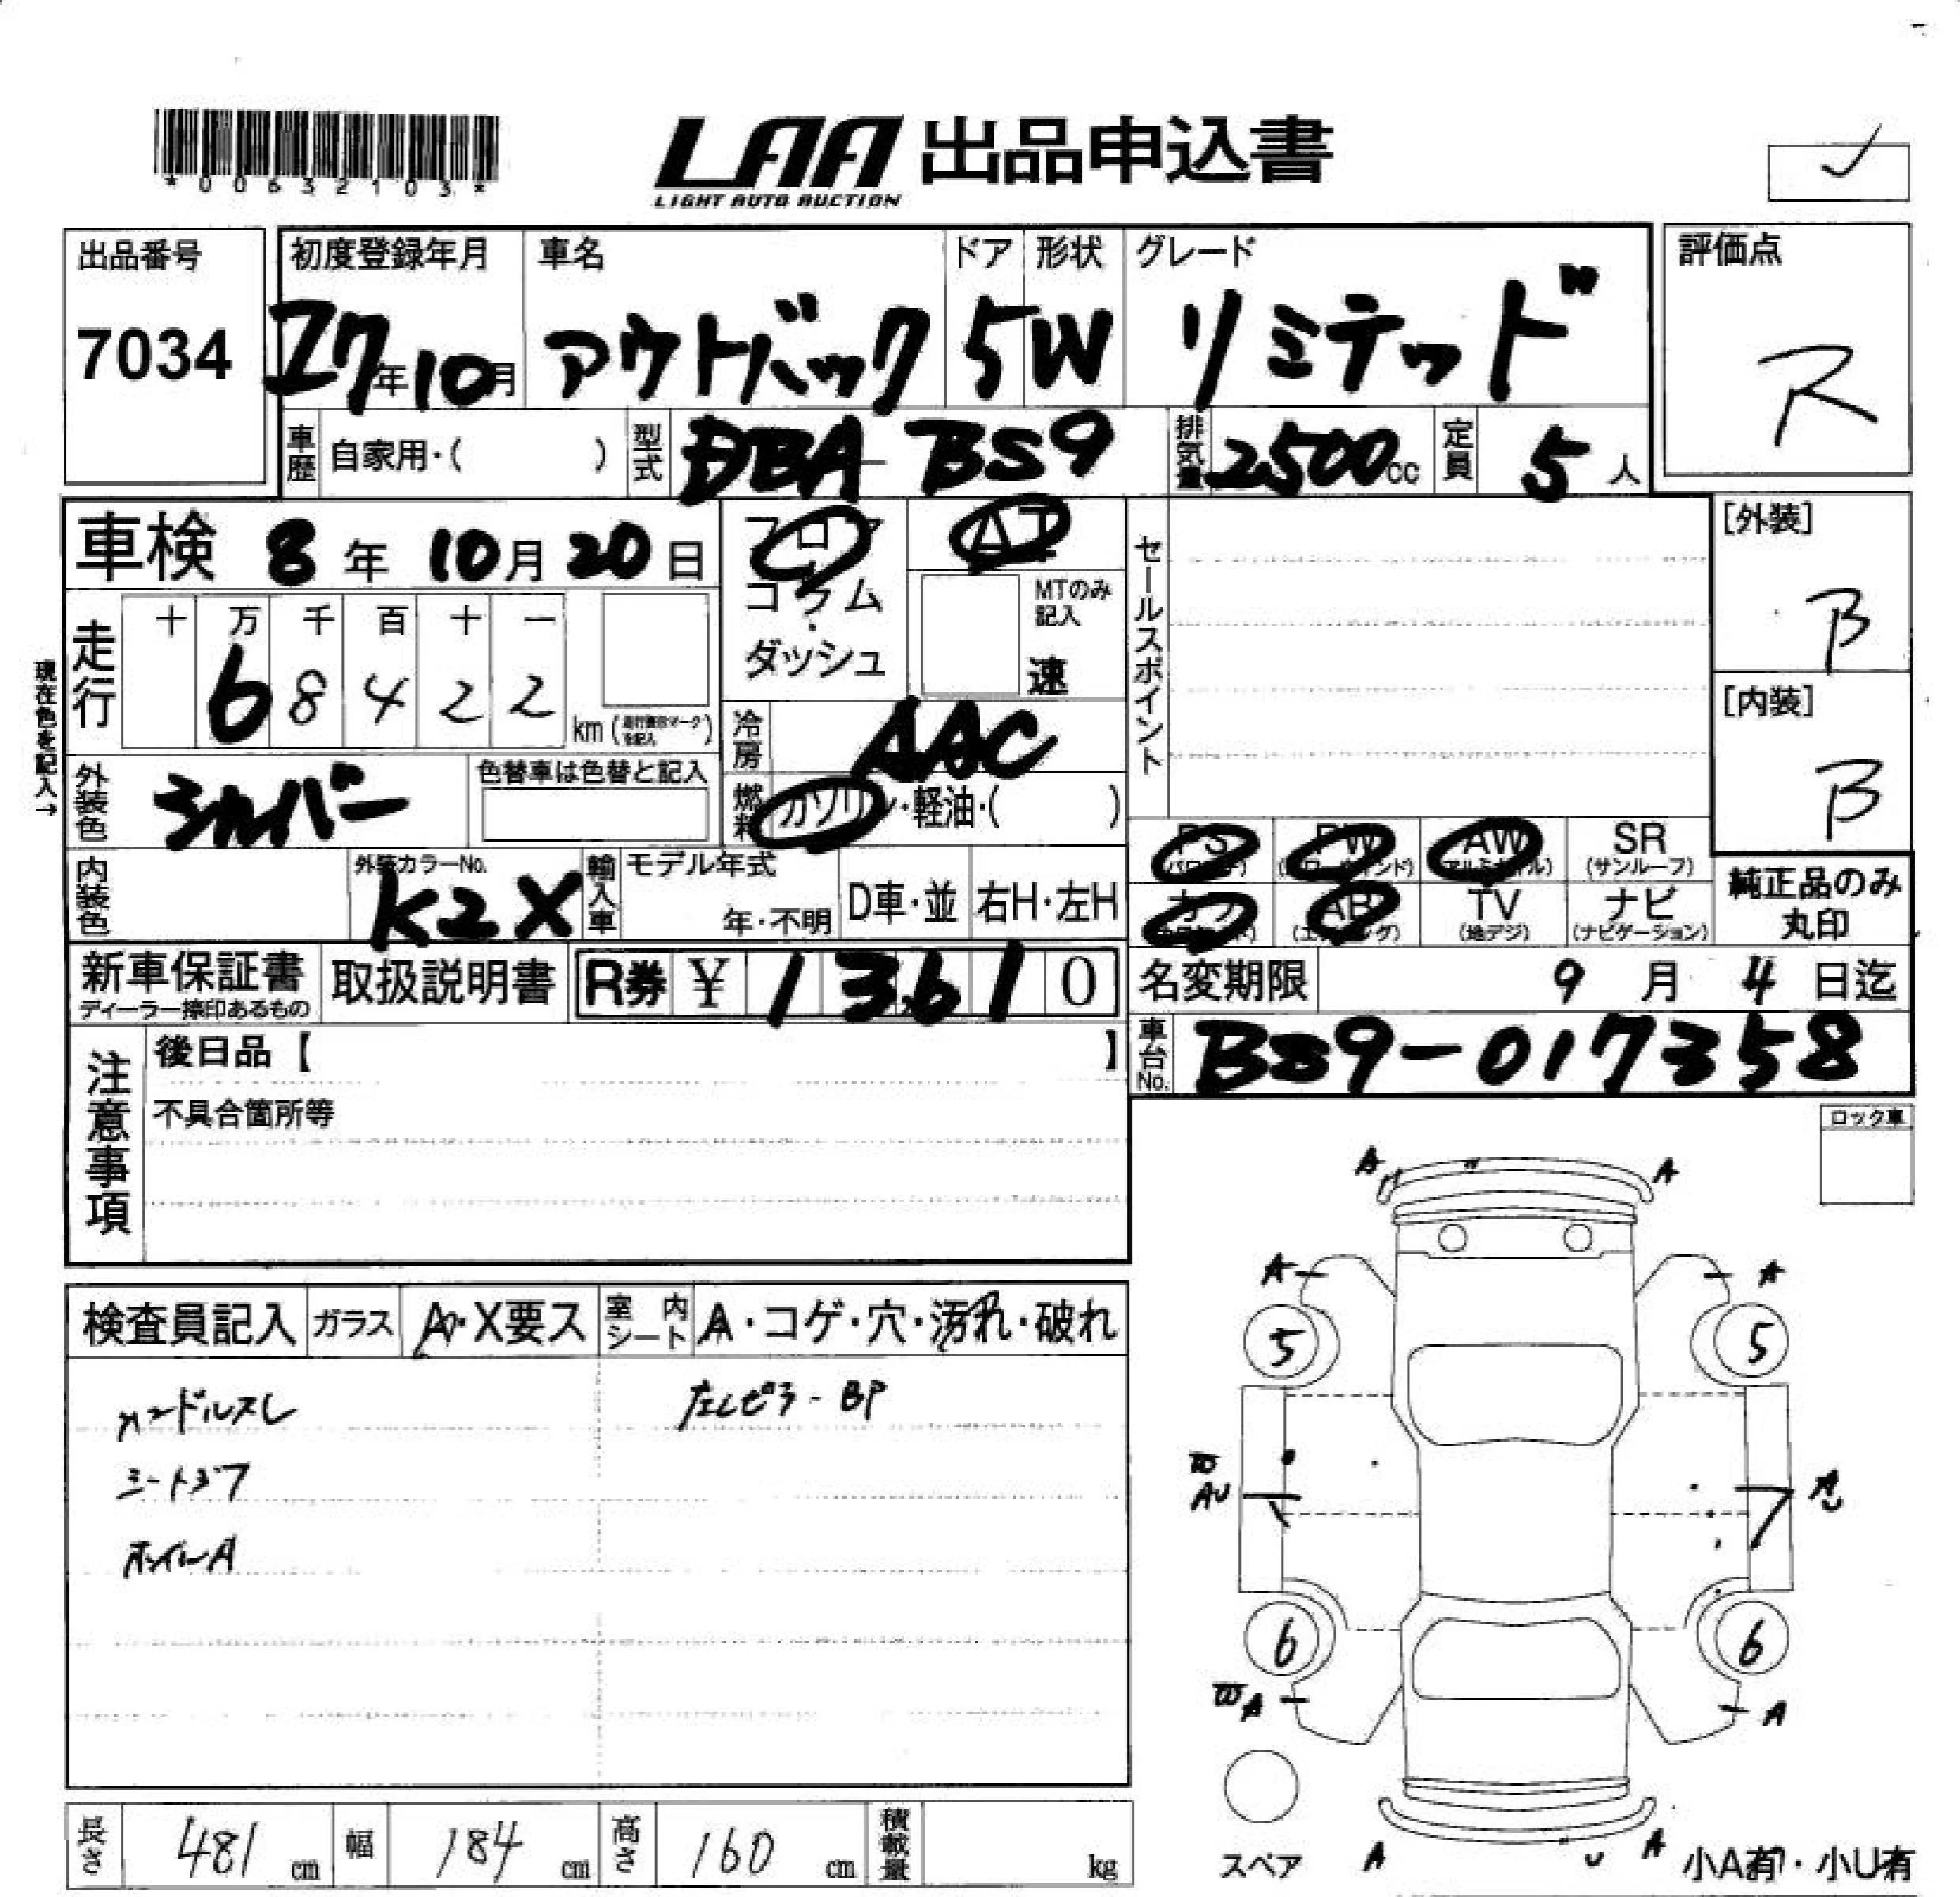 *00632103*
LAA 出品申込書
LIGHT AUTO AUCTION
出品番号 初度登録年月 車名 ドア 形状 グレード 評価点
7034 27年10月 アウトバック 5 W リミテッド R
車歴 自家用・( ) 型式 DBA-BS9 排気量 2500cc 定員 5人
車検 8年10月20日 フロア AT セールスポイント [外装]
コラム MTのみ記入 B
ダッシュ 速
走行 十 万 千 百 十 一
6 8 4 2 2 km (走行無印マークを記入) [内装]
現在色を記入→ B
冷房 AAC
外装色 シルバー 色替車は色替と記入 燃料 ガソリン・軽油・( )
PS (パワステ) PW (パワーウィンド) AW (アルミホイル) SR (サンルーフ)
内装色 外装カラーNo. K2X 輸入車 モデル年式 年・不明 D車・並 右H・左H
カワ AB (エアバッグ) TV (地デジ) ナビ (ナビゲーション) 純正品のみ丸印
新車保証書 取扱説明書 R券 ¥ 13,610 名変期限 9月4日迄
ディーラー捺印あるもの
注意事項 後日品【 】 車台No. BS9-017358
不具合箇所等 ロック車
検査員記入 ガラス A・X要ス 室内シート A・コゲ・穴・汚れ・破れ
ハンドルスレ 左Cピラ-BP
シートヨゴ
ホイールA
A A
A A
5 5
W
AU AU
6 6
W A A
スペア A U A 小A有・小U有
長さ 481 cm 幅 184 cm 高さ 160 cm 積載量 kg